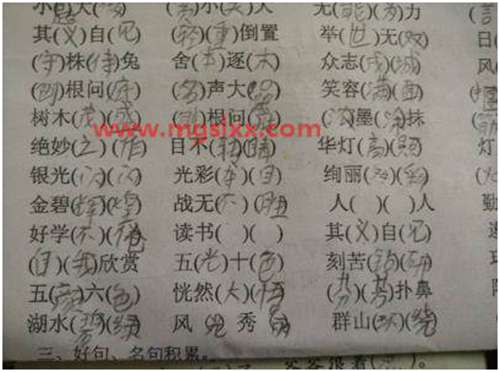 无(能)(为)力
其(义)自(见) (重)倒置 举(世)无(双) 日
(守)株(待)兔 舍(本)逐(末) 众志(成)(城) 风
(刨)根问(底) (名)声大(噪) 笑容(满)(面)
树木(茂)(盛) (刨)根问(底) (浓)墨( )抹
www.mgsixx.com
绝妙(之)(作) 目不(转)(睛) 华灯(高)(照) 灯
银光(闪)(闪) 光彩(夺)(目) 绚丽( )(彩)
金碧(辉)(煌) 战无(不)(胜) 人( )( )人 勤
好学(不)(倦) 读书( )( ) 其(义)自(见)
(自)(我)欣赏 五(光)十(色) 刻苦(钻)(研)
五(颜)六(色) 恍然(大)(悟) (芬)(芳)扑鼻
湖水(碧)(绿) 风 秀 群山(环)(绕)
三、好句、名句积累。